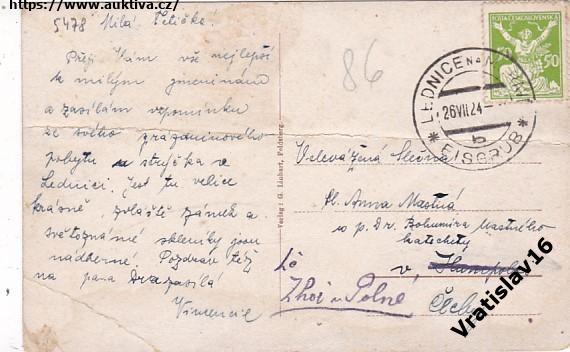 https://www.auktiva.cz/
5478 Milá Feličko!
Přeji Vám vše nejlepší
k milým jmeninám
a zasílám vzpomínku
ze svého prázdninového
pobytu u strýčka v
Lednici. Jest tu velice
krásně, zvláště zámek a
světoznámé skleníky jsou
nádherné. Pozdrav též
na pana Dra zasílá
Vincencie
86
Verlag: G. Linhart, Feldsberg.
POŠTA ČESKOSLOVENSKÁ
50 50
LEDNICE NA MORAVĚ
26 VII 24
b
* EISGRUB *
Velevážená Slečna
Sl. Anna Mastná
u p. Dr. Bohumíra Mastného
katechety
v Humpolci
Zhoř u Polné
Čechy
Vratislav16